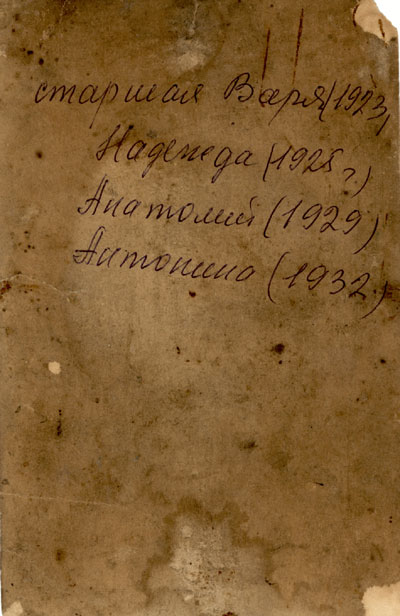 старшая Варя (1923)
Надежда (1925 г.)
Анатолий (1929)
Антонина (1932)